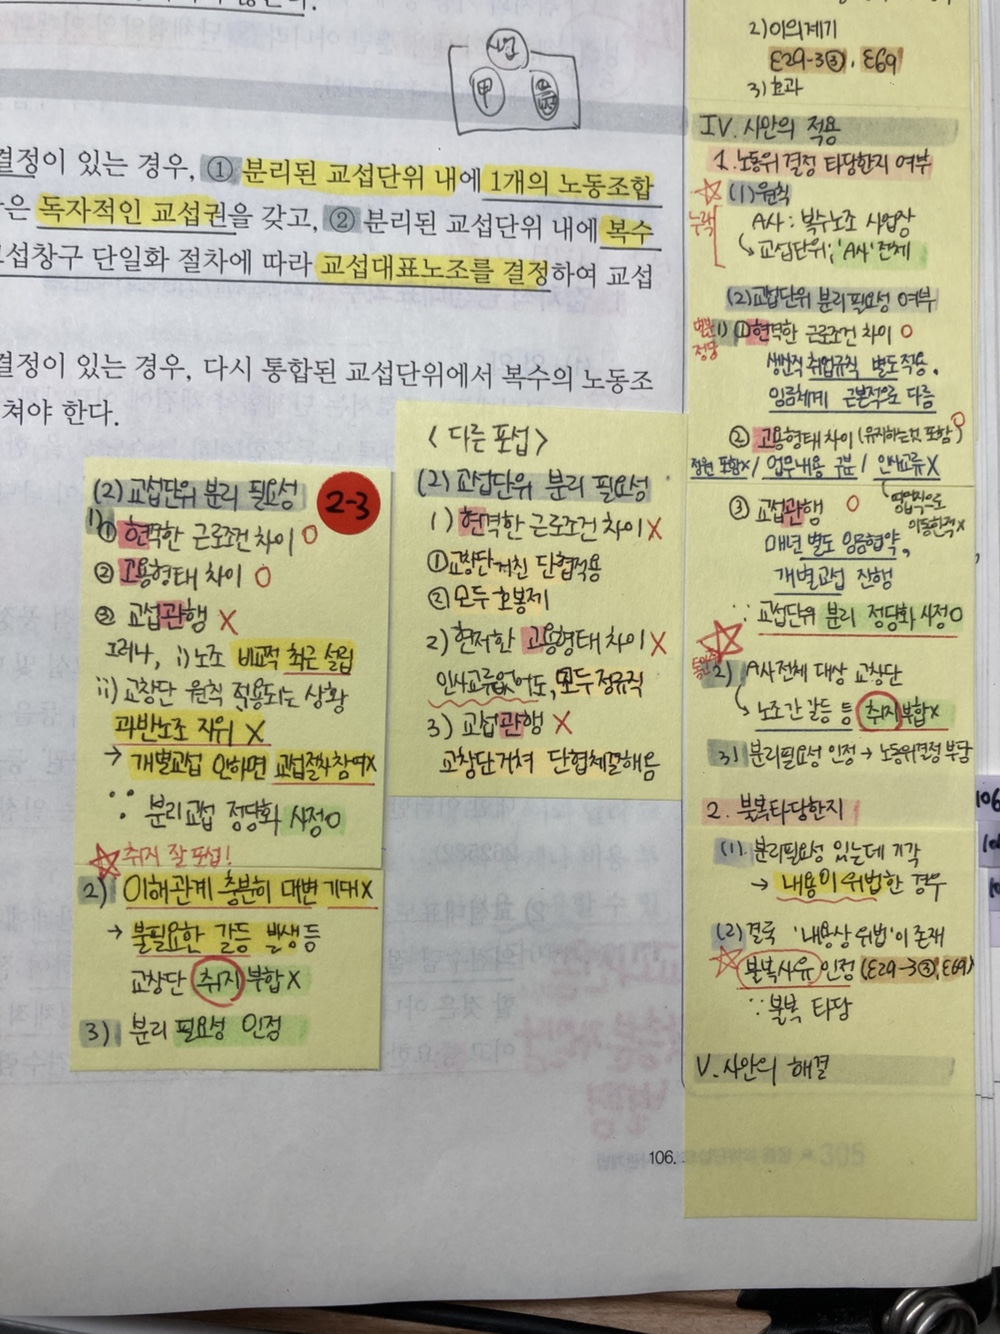 사업
甲
결정이 있는 경우, ① 분리된 교섭단위 내에 1개의 노동조합
은 독자적인 교섭권을 갖고, ② 분리된 교섭단위 내에 복수
섭창구 단일화 절차에 따라 교섭대표노조를 결정하여 교섭
결정이 있는 경우, 다시 통합된 교섭단위에서 복수의 노동조
쳐야 한다.
(2) 교섭단위 분리 필요성
2-3
1)
① 현격한 근로조건 차이 O
② 고용형태 차이 O
③ 교섭관행 X
그러나, i) 노조 비교적 최근 설립
ii) 교창단 원칙 적용되는 상황
과반노조 지위 X
→ 개별교섭 안하면 교섭절차 참여X
∵ 분리교섭 정당화 사정O
☆ 취지 잘 포섭!
2) 이해관계 충분히 대변 기대X
→ 불필요한 갈등 발생 등
교창단 취지 부합 X
3) 분리 필요성 인정
< 다른 포섭 >
(2) 교섭단위 분리 필요성
1) 현격한 근로조건 차이 X
① 교창단 거친 단협적용
② 모두 호봉제
2) 현저한 고용형태 차이 X
인사교류없어도, 모두 정규직
3) 교섭관행 X
교창단거쳐 단협체결해옴
2) 이의제기
§29-3③, §69
3) 효과
IV. 사안의 적용
1. 노동위 결정 타당한지 여부
☆ (1) 원칙
누락
A사 : 복수노조 사업장
↳ 교섭단위; 'A사' 전체
(2) 교섭단위 분리필요성 여부
1) ① 현격한 근로조건 차이 O
생번직 취업규칙 별도 적용.
임금체계 근본적으로 다름
② 고용형태 차이 (유지하는것 포함) O
정원 포함X / 업무내용 구분 / 인사교류 X
③ 교섭관행 O
이동한적 X
매년 별도 임금협약,
개별교섭 진행
∵ 교섭단위 분리 정당화 사정O
☆
2) A사 전체 대상 교창단
↳ 노조간 갈등 등 취지부합X
3) 분리필요성 인정 → 노동위결정 부당
2. 불복타당한지
(1) 분리필요성 있는데 기각
→ 내용이 위법한 경우
(2) 결국 '내용상 위법'이 존재
☆ 불복사유 인정 (§29-3③, §69)
∵ 불복 타당
V. 사안의 해결
106.
106